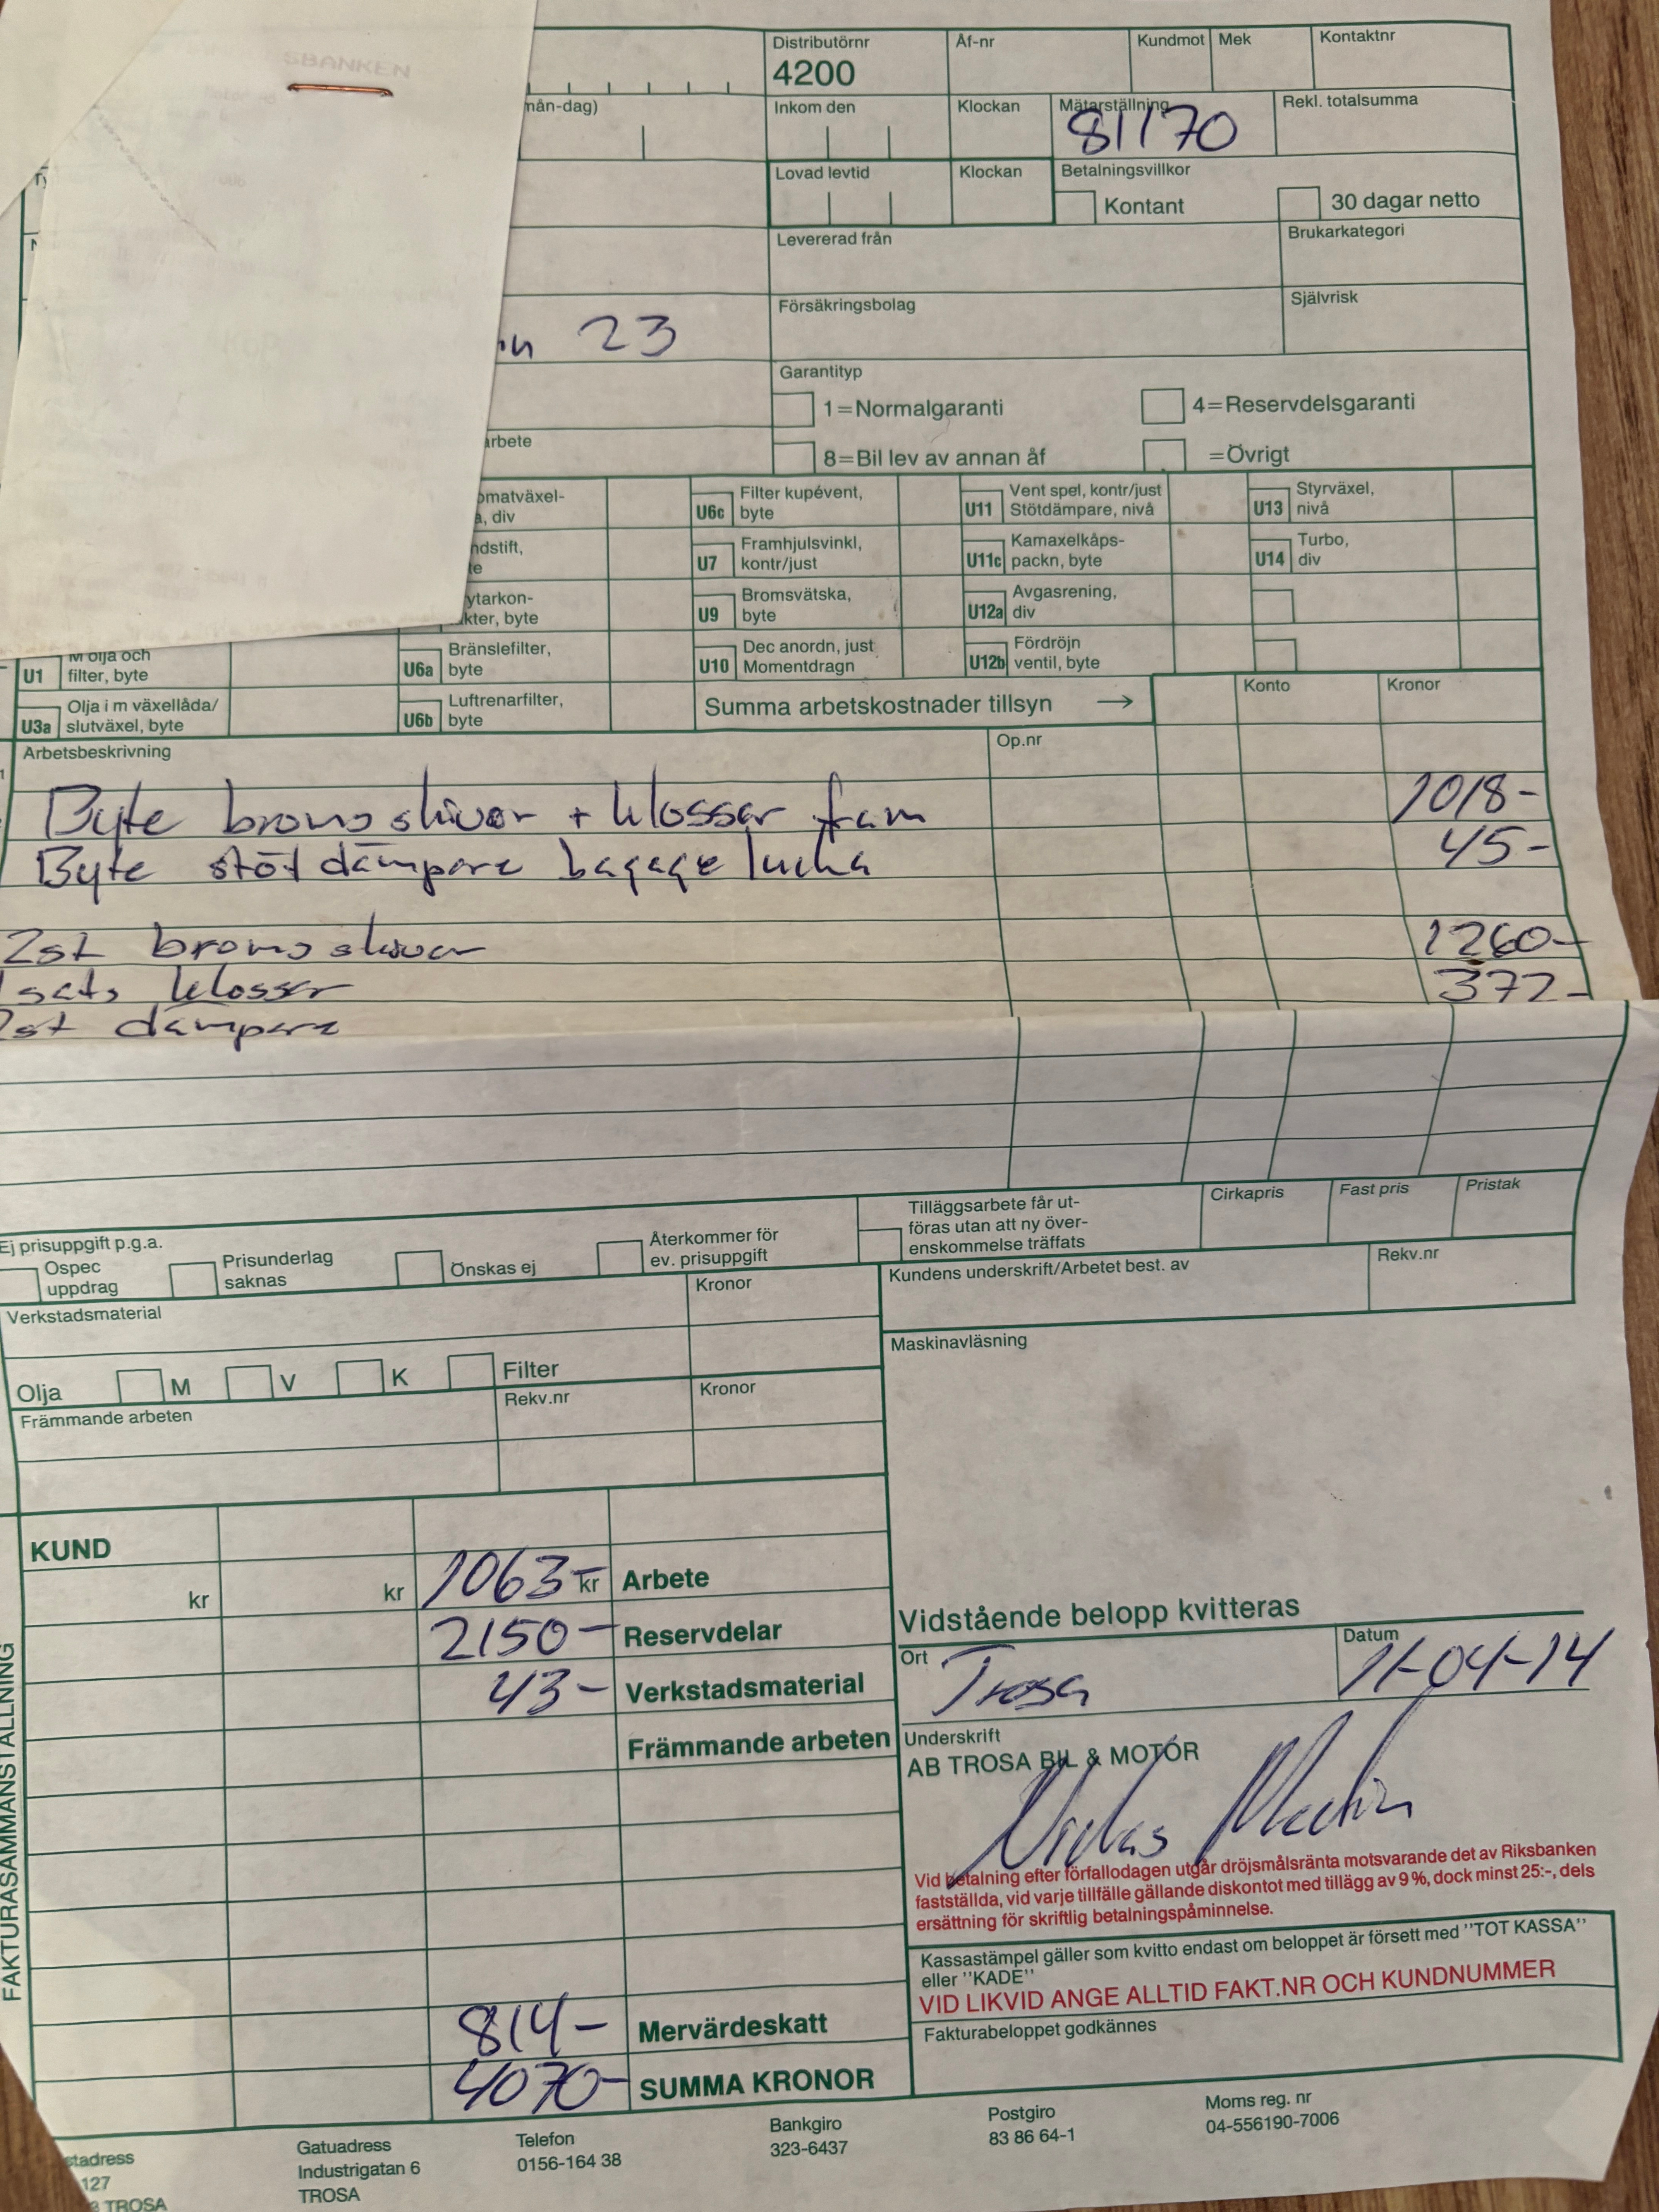 SBANKEN
Distributörnr
4200
Åf-nr
Kundmot
Mek
Kontaktnr
nån-dag)
Inkom den
Klockan
Mätarställning
81170
Rekl. totalsumma
Lovad levtid
Klockan
Betalningsvillkor
Kontant
30 dagar netto
Levererad från
Brukarkategori
Försäkringsbolag
Självrisk
23
Garantityp
1=Normalgaranti
4=Reservdelsgaranti
arbete
8=Bil lev av annan åf
=Övrigt
omatväxel-
a, div
U6c Filter kupévent,
byte
U11 Vent spel, kontr/just
Stötdämpare, nivå
U13 Styrväxel,
nivå
ndstift,
te
U7 Framhjulsvinkl,
kontr/just
U11c Kamaxelkåps-
packn, byte
U14 Turbo,
div
ytarkon-
kter, byte
U9 Bromsvätska,
byte
U12a Avgasrening,
div
U1 M olja och
filter, byte
U6a Bränslefilter,
byte
U10 Dec anordn, just
Momentdragn
U12b Fördröjn
ventil, byte
U3a Olja i m växellåda/
slutväxel, byte
U6b Luftrenarfilter,
byte
Summa arbetskostnader tillsyn →
Konto
Kronor
Arbetsbeskrivning
Op.nr
Byte bromsskivor + klossar fram 1018-
Byte stötdämpare bagagelucka 45-
2st bromsskivor 1260-
1 sats klossar 372-
2st dämpare
Ej prisuppgift p.g.a.
Ospec
uppdrag
Prisunderlag
saknas
Önskas ej
Återkommer för
ev. prisuppgift
Tilläggsarbete får ut-
föras utan att ny över-
enskommelse träffats
Cirkapris
Fast pris
Pristak
Verkstadsmaterial
Kronor
Kundens underskrift/Arbetet best. av
Rekv.nr
Olja M V K Filter
Maskinavläsning
Främmande arbeten
Rekv.nr
Kronor
FAKTURASAMMANSTÄLLNING
KUND
kr kr 1063- kr Arbete
2150- Reservdelar
43- Verkstadsmaterial
Främmande arbeten
814- Mervärdeskatt
4070- SUMMA KRONOR
Vidstående belopp kvitteras
Ort
Trosa
Datum
11-04-14
Underskrift
AB TROSA BIL & MOTOR
Vid betalning efter förfallodagen utgår dröjsmålsränta motsvarande det av Riksbanken
fastställda, vid varje tillfälle gällande diskontot med tillägg av 9%, dock minst 25:-, dels
ersättning för skriftlig betalningspåminnelse.
Kassastämpel gäller som kvitto endast om beloppet är försett med "TOT KASSA"
eller "KADE"
VID LIKVID ANGE ALLTID FAKT.NR OCH KUNDNUMMER
Fakturabeloppet godkännes
stadress
127
TROSA
Gatuadress
Industrigatan 6
TROSA
Telefon
0156-164 38
Bankgiro
323-6437
Postgiro
83 86 64-1
Moms reg. nr
04-556190-7006